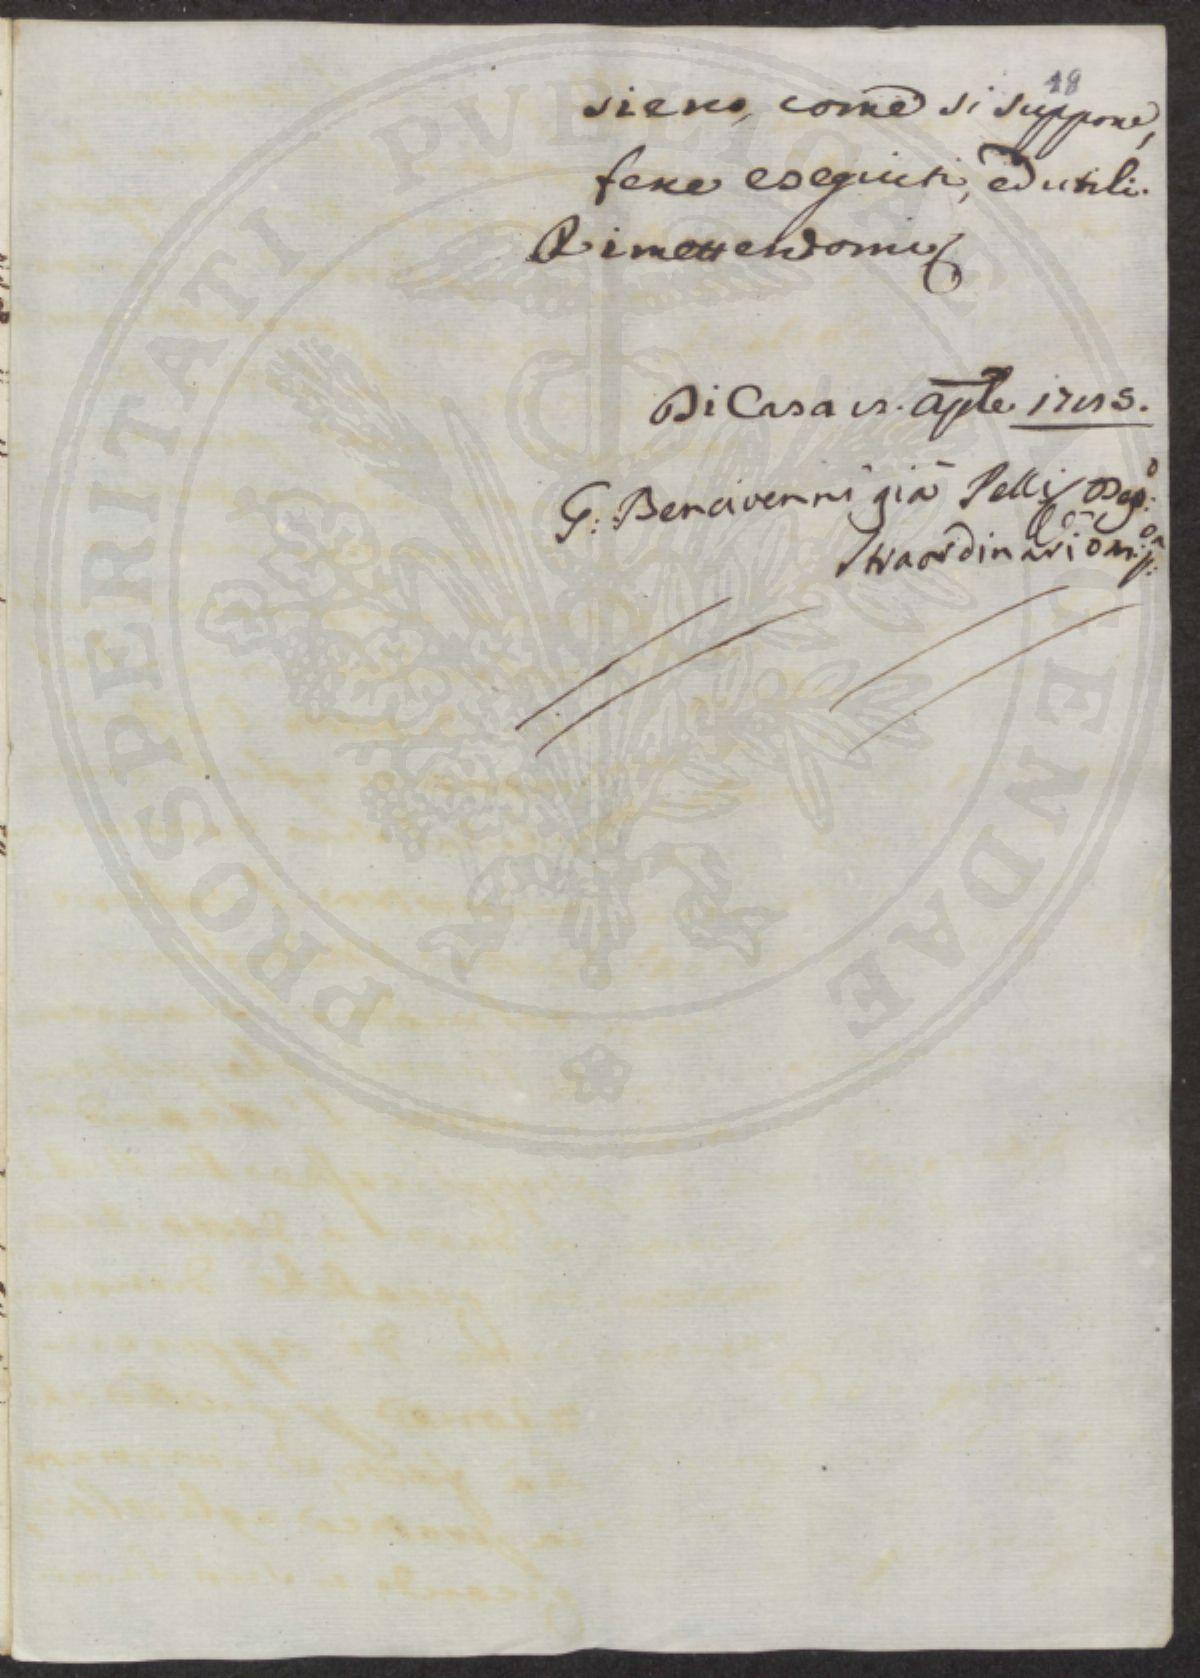 48
sieno, come si suppone,
bene eseguiti, ed utili.
Rimettendomi
Di Casa Aple
G: Bencivenni già Pelli Dep:o
straordinario
PROSPERITATI PVBLICAE AVGENDAE